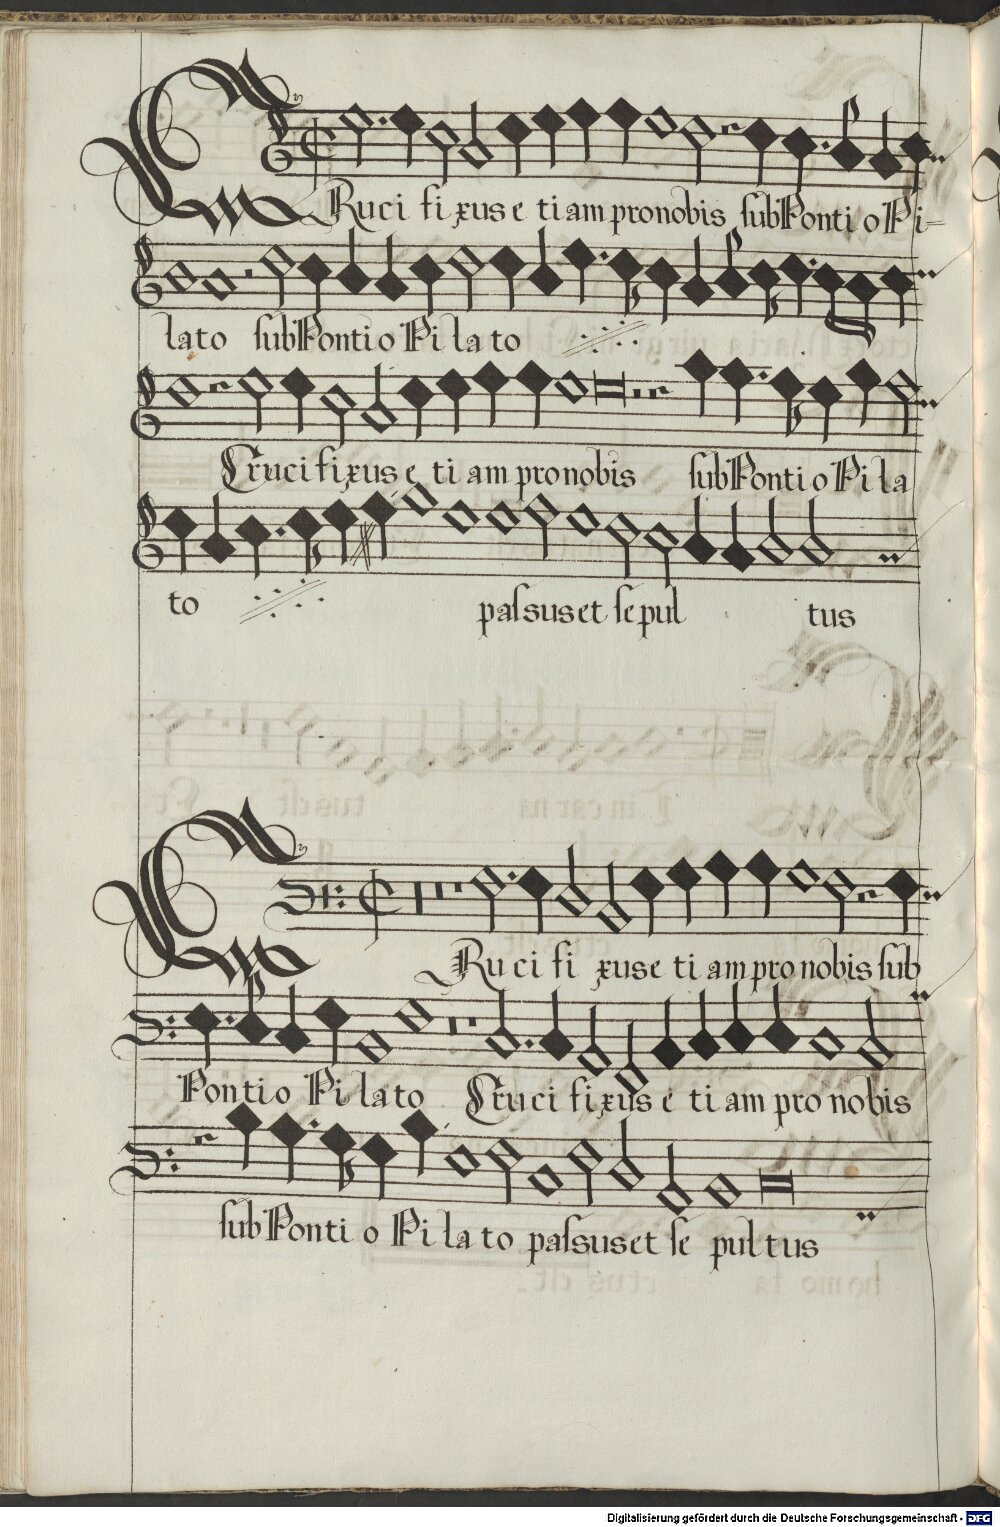 CRucifixus etiam pro nobis sub Pontio Pi-
lato sub Pontio Pilato
Crucifixus etiam pro nobis sub Pontio Pila
to paſsus et ſepul tus
CRucifi xus etiam pro nobis ſub
Pontio Pilato Crucifixus etiam pro nobis
ſub Pontio Pilato paſsus et ſe pultus
Digitalisierung gefördert durch die Deutsche Forschungsgemeinschaft - DFG